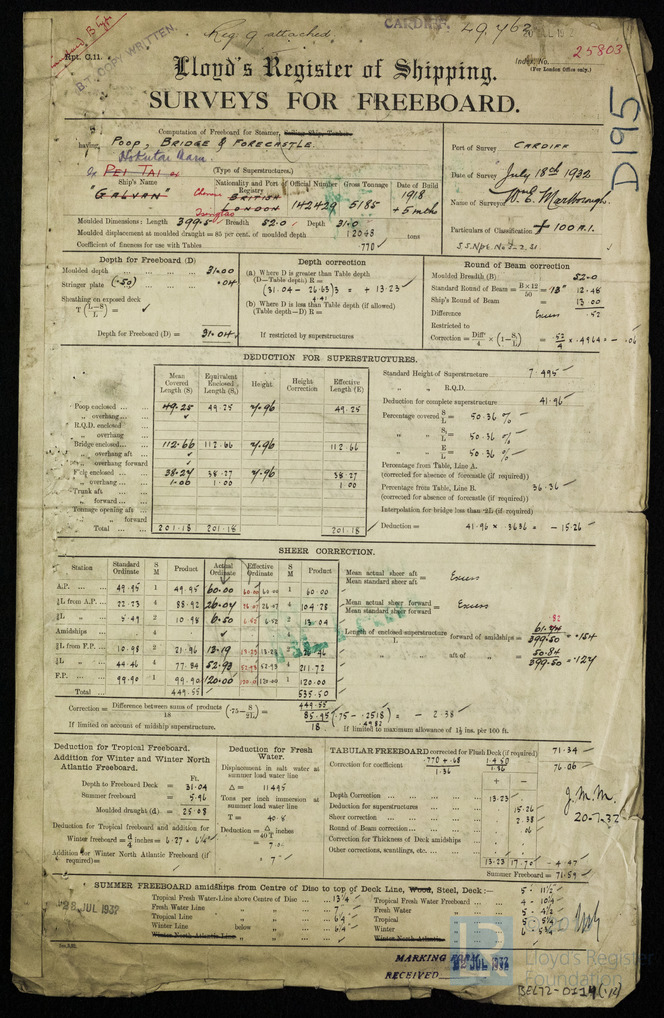 Reg. 9 attached.
CARDIFF.
49,762
20 JUL 1932
Rpt. C.11.
B.T. COPY WRITTEN.
Index No.
25803
(For London Office only.)
Lloyd's Register of Shipping.
SURVEYS FOR FREEBOARD.
D195
Computation of Freeboard for Steamer, Sailing Ship, Tanker
having POOP, BRIDGE & FORECASTLE.
(Type of Superstructures.)
ex PEI TAI ex
Ship's Name
"GALVAN"
Nationality and Port of Registry
BRITISH
LONDON
Chinese
Tsingtao
Official Number
142429
Gross Tonnage
5185
Date of Build
1918
+ 5 mth
Port of Survey CARDIFF
Date of Survey July 18th 1932
Name of Surveyor Wm. E. Marlborough.
Particulars of Classification + 100 A.1.
Moulded Dimensions: Length 399.5 Breadth 52.0 Depth 31.0
Moulded displacement at moulded draught = 85 per cent. of moulded depth 12048 tons
Coefficient of fineness for use with Tables .770
Depth for Freeboard (D)
Moulded depth 31.00
Stringer plate (.50) .04
Sheathing on exposed deck
T (L-S/L) =
Depth for Freeboard (D) = 31.04
Depth correction
(a) Where D is greater than Table depth
(D—Table depth) R =
(31.04 - 26.63) 3 = + 13.23
4.41
(b) Where D is less than Table depth (if allowed)
(Table depth—D) R =
If restricted by superstructures
Round of Beam correction
Moulded Breadth (B) 52.0
Standard Round of Beam = B×12/50 = 12.48
Ship's Round of Beam = 13.00
Difference Excess .52
Restricted to
Correction = Diffce/4 × (1-S1/L) = .52/4 × .4964 = - .06
DEDUCTION FOR SUPERSTRUCTURES.
Mean Covered Length (S) Equivalent Enclosed Length (S1) Height Height Correction Effective Length (E)
Poop enclosed 49.25 49.25 7.96 49.25
„ overhang
R.Q.D. enclosed
„ overhang
Bridge enclosed 112.66 112.66 7.96 112.66
„ overhang aft
„ overhang forward
F'cle enclosed 38.27 38.27 7.96 38.27
„ overhang 1.00 1.00 1.00
Trunk aft
„ forward
Tonnage opening aft
„ „ forward
Total 201.18 201.18 201.18
Standard Height of Superstructure 7.495
„ „ R.Q.D.
Deduction for complete superstructure 41.96
Percentage covered S/L = 50.36 %
„ „ S1/L = 50.36 %
„ „ E/L = 50.36 %
Percentage from Table, Line A.
(corrected for absence of forecastle (if required))
Percentage from Table, Line B. 36.36
(corrected for absence of forecastle (if required))
Interpolation for bridge less than .2L (if required)
Deduction = 41.96 × .3636 = - 15.26
SHEER CORRECTION.
Station Standard Ordinate S M Product Actual Ordinate Effective Ordinate S M Product
A.P. 49.95 1 49.95 60.00 60.00 60.00 1 60.00
⅙L from A.P. 22.23 4 88.92 26.07 26.07 4 104.28
⅓L „ 5.49 2 10.98 6.50 6.52 6.52 2 13.04
Amidships 4 4
⅓L from F.P. 10.98 2 21.96 13.19 2
⅙L „ 44.46 4 77.84 52.93 52.93 52.93 4 211.72
F.P. 99.90 1 99.90 120.00 120.00 1 120.00
Total 449.55 535.50
Mean actual sheer aft / Mean standard sheer aft = Excess
Mean actual sheer forward / Mean standard sheer forward = Excess
Length of enclosed superstructure / L forward of amidships = 61.24/399.50 = .154
„ „ aft of „ = 50.84/399.50 = .127
Correction = Difference between sums of products / 18 (.75 - S/2L) =
449.55
85.95/18 (.75 - .2518) = - 2.38
.4982
If limited on account of midship superstructure.
If limited to maximum allowance of 1½ ins. per 100 ft.
Deduction for Tropical Freeboard.
Addition for Winter and Winter North Atlantic Freeboard.
Ft.
Depth to Freeboard Deck = 31.04
Summer freeboard = 5.96
Moulded draught (d) = 25.08
Deduction for Tropical freeboard and addition for
Winter freeboard = d/4 inches = 6.27 = 6¼"
Addition for Winter North Atlantic Freeboard (if required) =
Deduction for Fresh Water.
Displacement in salt water at summer load water line
Δ = 11495
Tons per inch immersion at summer load water line
T = 40.8
Deduction = Δ/40T inches
= 7.0
= 7"
TABULAR FREEBOARD corrected for Flush Deck (if required) 71.34
Correction for coefficient .770 + .68 / 1.36 1.450 / 1.36 76.06
+ -
Depth Correction 13.23
Deduction for superstructures 15.26
Sheer correction 2.38
Round of Beam correction .06
Correction for Thickness of Deck amidships
Other corrections, scantlings, etc.
13.23 17.70 - 4.47
Summer Freeboard = 71.59
J.M.M.
20-7-32
SUMMER FREEBOARD amidships from Centre of Disc to top of Deck Line, Wood, Steel, Deck:— 5 . 11½"
Tropical Fresh Water Line above Centre of Disc 13¼
Fresh Water Line „ „ 7
Tropical Line „ „ 6¼
Winter Line below „ 6¼
Winter North Atlantic Line „ „
Tropical Fresh Water Freeboard 4 . 10¼
Fresh Water „ 5 . 4½
Tropical „ 5 . 5¼
Winter „ 6 . 5¾
Winter North Atlantic „
28 JUL 1932
MARKING FORM
RECEIVED
JUL 1932
© 20
Lloyd's Register
Foundation
BEL72-0114